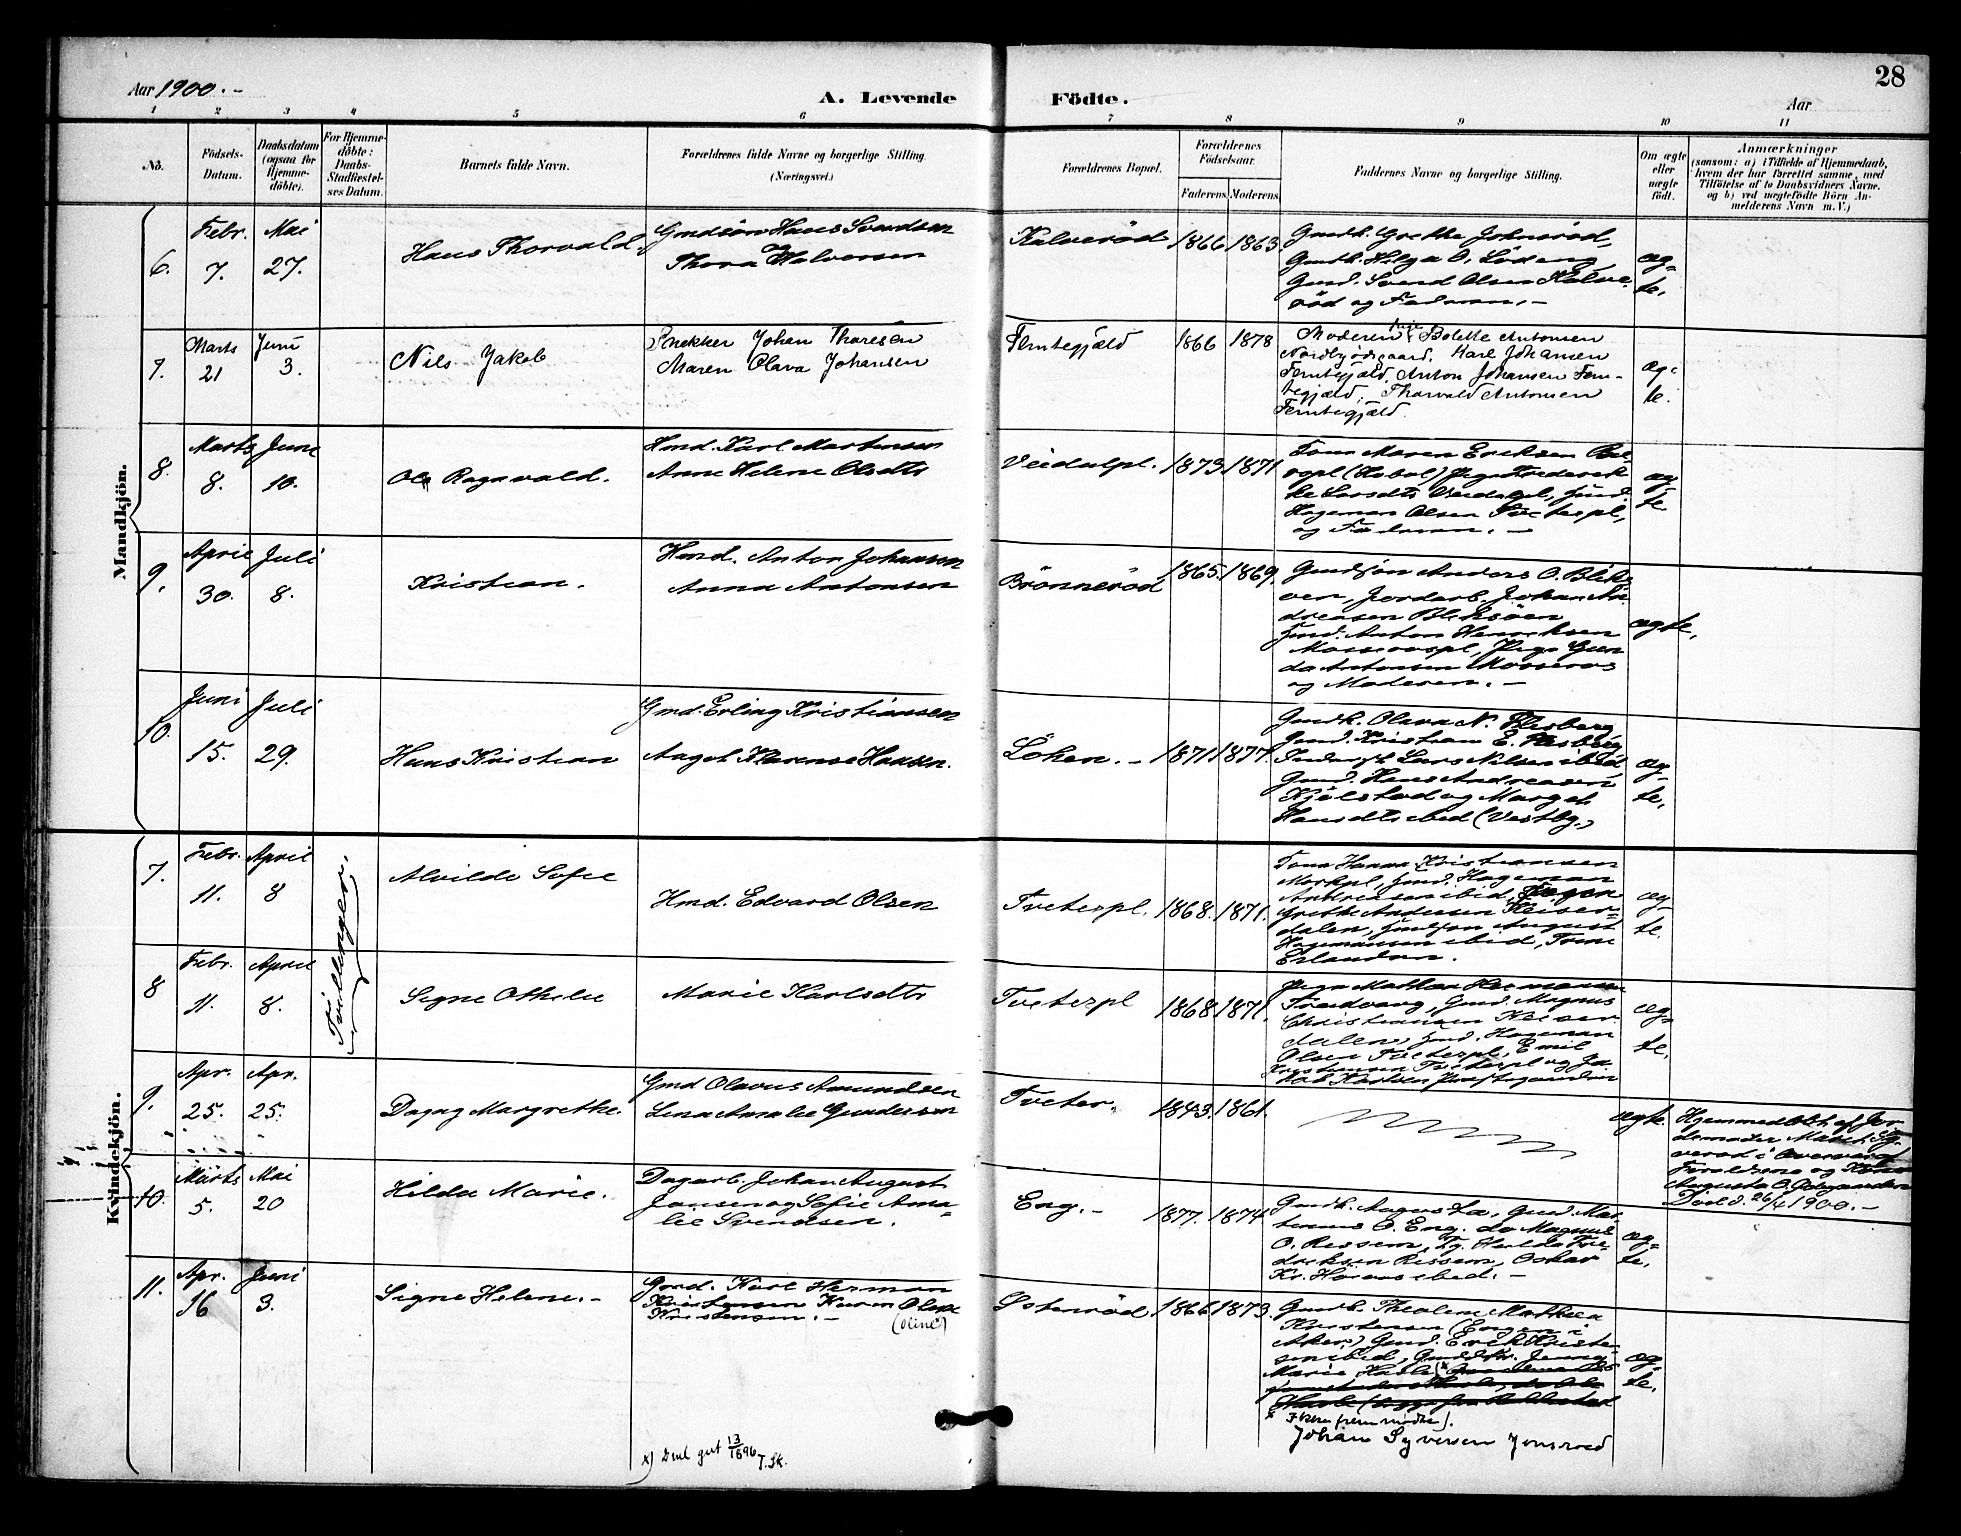 Aar 1900.-
A. Levende
Födte.
Aar
28
1 2 3 4 5 6 7 8 9 10 11
No.
Födsels-
Datum.
Daabsdatum
(ogsaa for
Hjemme-
döbte).
For Hjemme-
döbte:
Daabs-
Stadfæstel-
ses Datum.
Barnets fulde Navn.
Forældrenes fulde Navne og borgerlige Stilling.
(Næringsvei.)
Forældrenes Bopæl.
Forældrenes
Födselsaar.
Faderens. Moderens.
Faddernes Navne og borgerlige Stilling.
Om ægte
eller
uægte
födt.
Anmærkninger
(saasom: a) i Tilfælde af Hjemmedaab,
hvem der har forrettet samme, med
Tilföielse af to Daabsvidners Navne.
og b) ved uægtefödte Börn An-
melderens Navn m. V.)
Mandkjön.
6.
Febr.
7.
Mai
27.
Hans Thorvald.
Gmdsøn Hans Svendsen
Thora Halvorsen
Kalverød
1866 1863.
Gmdk. Grethe Johnsrød,
Gmdk. Helga O. Lödeng,
Gmd. Svend Olsen Kalve-
rød og Faderen. -
æg-
te.
7.
Marts
21
Juni
3.
Nils Jakob
Snekker Johan Thoresen
Maren Olava Johansen
Femtegjæld
1866 1878
Moderen, Bolette Antonsen
Nordbyødegaard, Karl Johansen
Femtegjæld, Anton Johansen Fem-
tegjæld, Thorvald Antonsen
Femtegjæld.
æg-
te.
8.
Marts
8.
Juni
10.
Ole Ragnvald.
Hmd. Karl Martinsen
Anne Helene Olsdtr
Veidalpl.
1873. 1871
Tone Maren Eriksen
(Hobøl) Pige Frederik-
ke Larsdtr Veidalpl,
Hageman Olsen Tveterpl,
og Faderen. -
æg-
te
9.
April
30.
Juli
8.
Kristian.
Hmd. Anton Johansen
Anna Antonsen
Brønnerød
1865. 1869.
Gmdsøn Anders O. Blik-
øen, Jordarb. Johan An-
dreasen Bliksøen
Gmd. Anton Henriksen
Mosserospl, Pige Gun-
da Antonsen Mosseros
og Moderen. -
ægte.
10.
Juni
15.
Juli
29.
Hans Kristian
Gmd. Erling Kristiansen
Aagot Klarense Hansen.
Løken. -
1871 1877.
Gmdk. Olava N.
Gmd. Kristian E.
Lars Nilsen ibid,
Gmd. Hans Andreasen
Kjølstad og Margit
Hansdtr ibid (Vestby.)
æg-
te.
Kvindekjön.
7.
Febr.
11.
April
8
Tvillinger.
Alvilde Sofie
Hmd. Edvard Olsen
Tveterpl.
1868. 1871.
Tone Hanna Kristiansen
Hageman
Andreasen ibid,
Grethe Andersen Keiser-
dalen, August
Hagemansen ibid, Tone
Erlandsen.
æg-
te.
8
Febr.
11.
April
8.
Signe Othilie
Marie Karlsdtr
Tveterpl
1868 1871.
Pige Mathea Hermansen
Gmd. Magnus
Christiansen Keiser-
dalen, Hageman
Olsen Tveterpl, Emil
Kristiansen Tveterpl og Ja-
kob Karlsen
æg-
te.
9.
Apr.
25.
Apr.
25.
Dagny Margrethe.
Gmd Olavus Amundsen
Lena Amalie Gundersen
Tveter.
1843. 1861.
ægte.
Hjemmedöbt af Jor-
demoder Maren Sy-
verød i Overvær af
Forældrene og
Augusta O.
Död d. 26/4 1900. -
10.
Marts
5.
Mai
20
Hilda Marie.
Dagarb. Johan August
Jansen og Sofie Ama-
lie Svendsen.
Eng. -
1877. 1874
Gmdk. Augusta, Gmd. Mar-
tinius O. Eng, do Magnus
O. Ressem, Tj. Hulda Fre-
driksen Ressem, Oskar
Kr. ibid. -
æg-
te.
11.
Apr.
16
Juni
3.
Signe Helene. -
Gmd. Karl Herman
Kristensen Karen Oline
Kristensen. -
(Oline)
Østenrød
1866 1873.
Gmdk. Theoline Mathea
Kristensen (Engen i
Aker), Gmd. Erik Kriste-
sen ibid, Jenny
Marie
x Ikke fremmødte).
Johan Syversen Jonsrød
æg-
te.
x) Deul gut 13/1896 T. Sk.